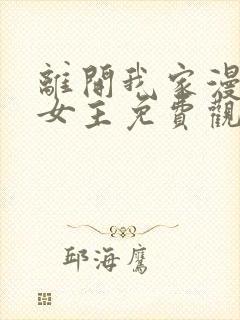 離開我家漫
女主免費觀
邱海鷹